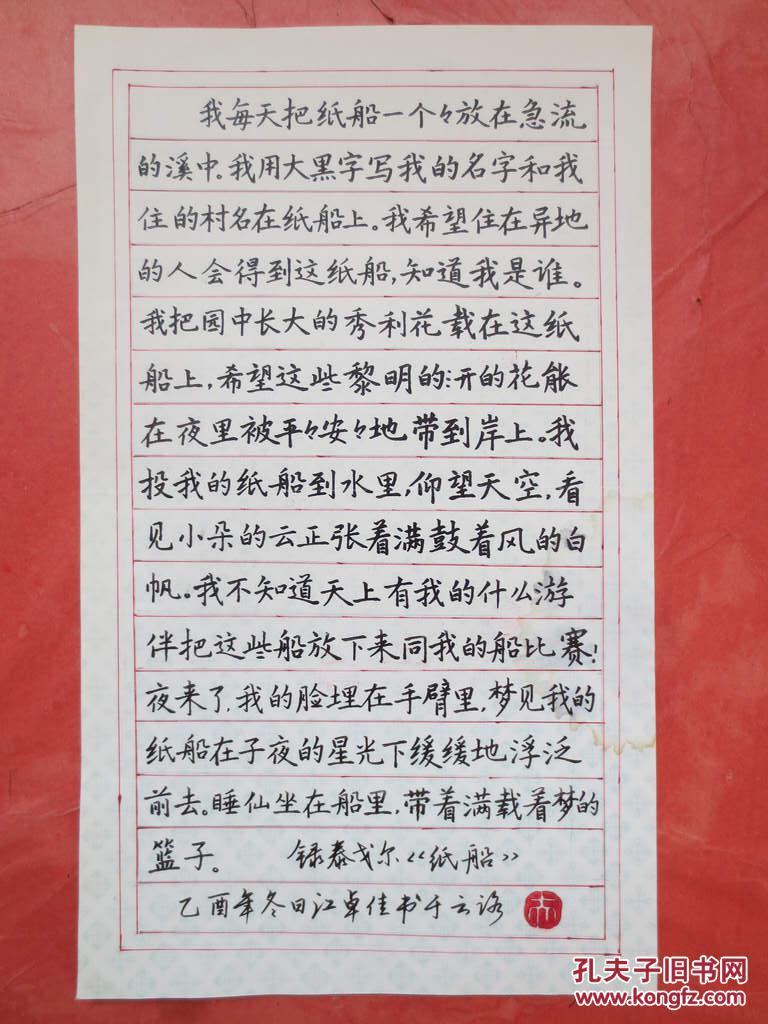 我每天把纸船一个々放在急流
的溪中。我用大黑字写我的名字和我
住的村名在纸船上。我希望住在异地
的人会得到这纸船,知道我是谁。
我把园中长大的秀利花载在这纸
船上,希望这些黎明的开的花能
在夜里被平々安々地带到岸上。我
投我的纸船到水里,仰望天空,看
见小朵的云正张着满鼓着风的白
帆。我不知道天上有我的什么游
伴把这些船放下来同我的船比赛!
夜来了,我的脸埋在手臂里,梦见我的
纸船在子夜的星光下缓缓地浮泛
前去。睡仙坐在船里,带着满载着梦的
篮子。 録泰戈尔《纸船》
乙酉年冬日江卓佳书于云海
孔夫子旧书网
www.kongfz.com